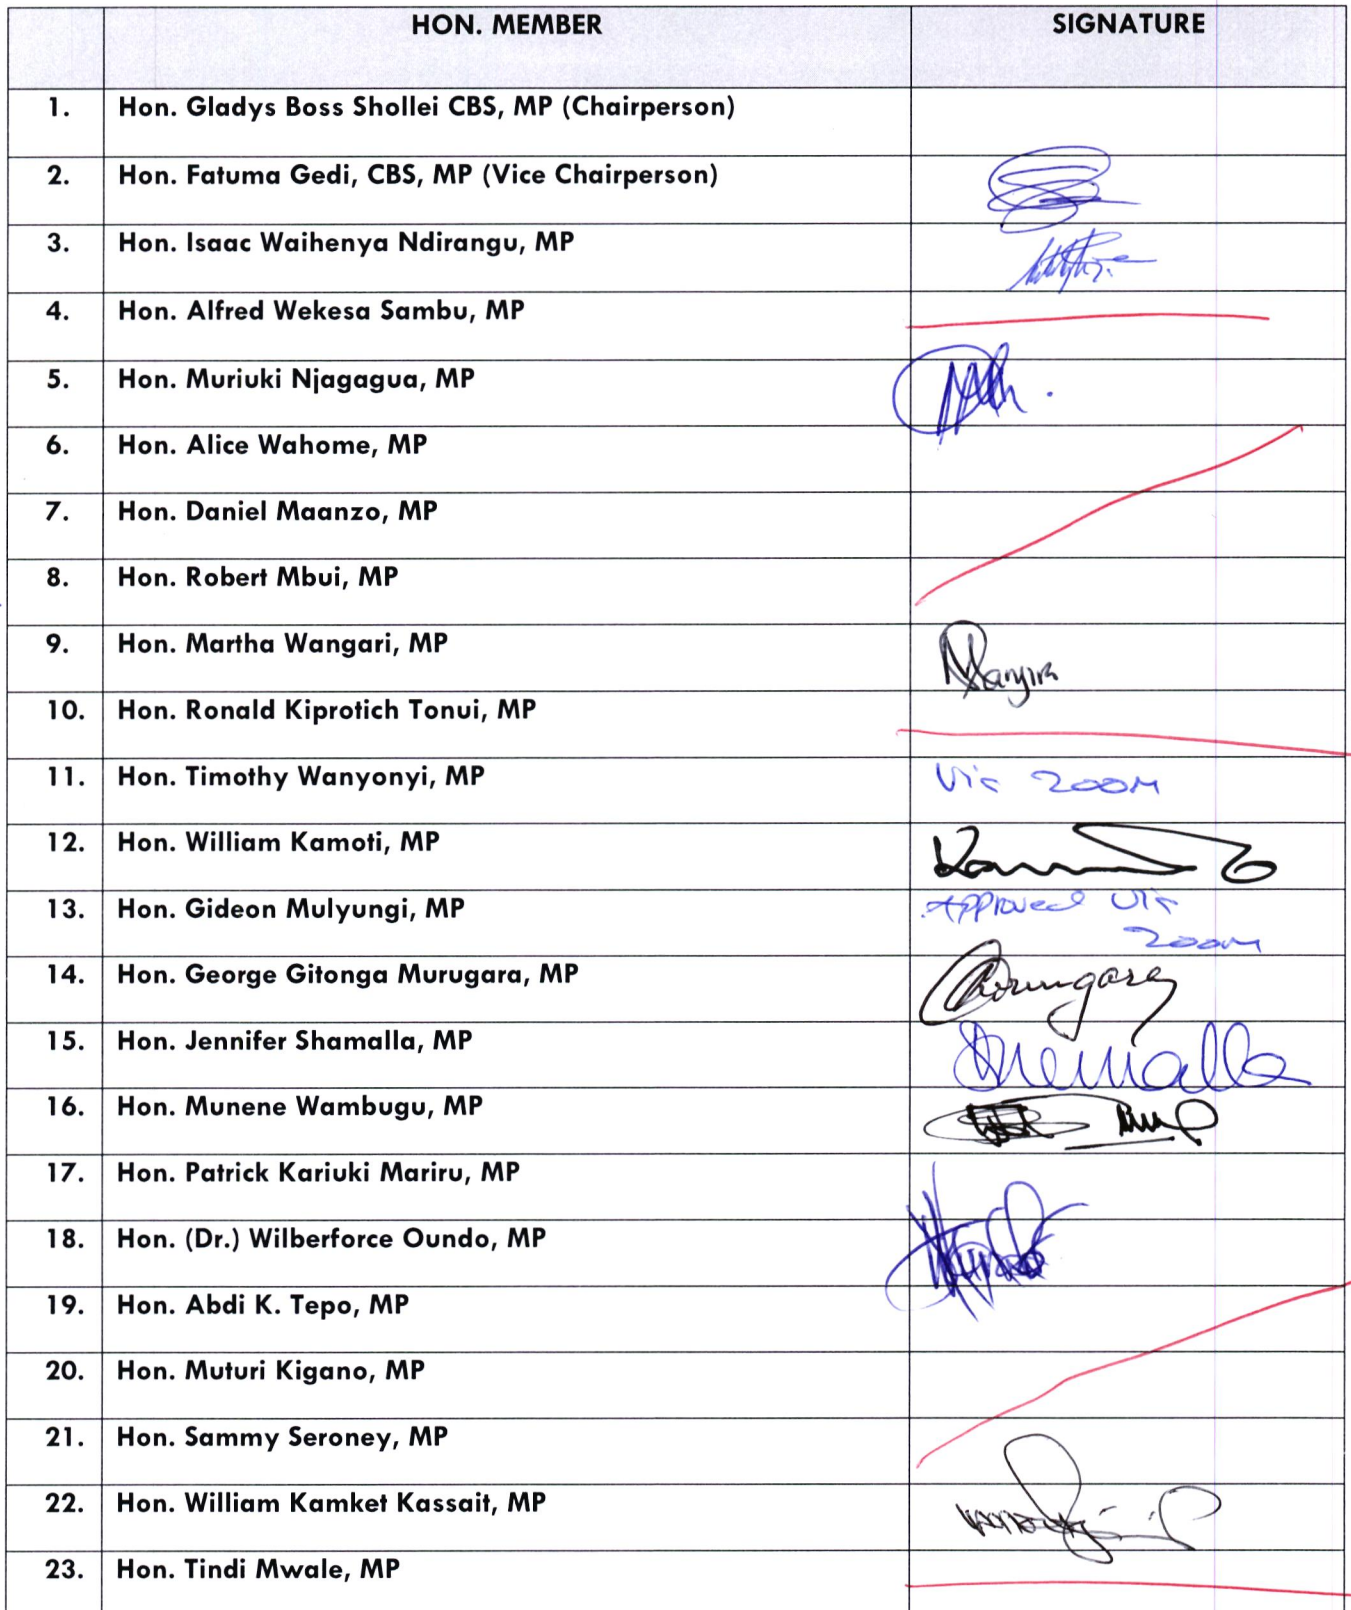 HON. MEMBER SIGNATURE
1. Hon. Gladys Boss Shollei CBS, MP (Chairperson)
2. Hon. Fatuma Gedi, CBS, MP (Vice Chairperson)
3. Hon. Isaac Waihenya Ndirangu, MP
4. Hon. Alfred Wekesa Sambu, MP
5. Hon. Muriuki Njagagua, MP
6. Hon. Alice Wahome, MP
7. Hon. Daniel Maanzo, MP
8. Hon. Robert Mbui, MP
9. Hon. Martha Wangari, MP
10. Hon. Ronald Kiprotich Tonui, MP
11. Hon. Timothy Wanyonyi, MP Via Zoom
12. Hon. William Kamoti, MP
13. Hon. Gideon Mulyungi, MP Approved Via
Zoom
14. Hon. George Gitonga Murugara, MP
15. Hon. Jennifer Shamalla, MP
16. Hon. Munene Wambugu, MP
17. Hon. Patrick Kariuki Mariru, MP
18. Hon. (Dr.) Wilberforce Oundo, MP
19. Hon. Abdi K. Tepo, MP
20. Hon. Muturi Kigano, MP
21. Hon. Sammy Seroney, MP
22. Hon. William Kamket Kassait, MP
23. Hon. Tindi Mwale, MP